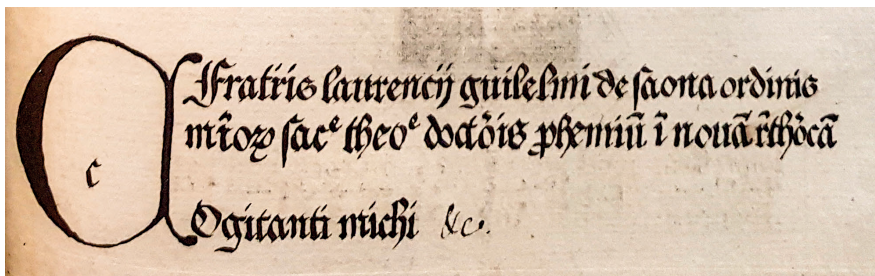 Fratris laurencij guilelmi de saona ordinis
mīoꝝ sacᵉ theoᵉ doctōis ꝓhemiū ī nouā rthōcā
c
Ogitanti michi &c.